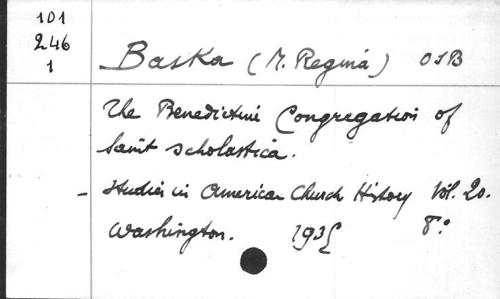 101
246
1
Baska (M. Regina) OSB
The Benedictine Congregation of
Saint Scholastica.
- Studies in American Church History Vol. 20.
Washington. 1935 8°